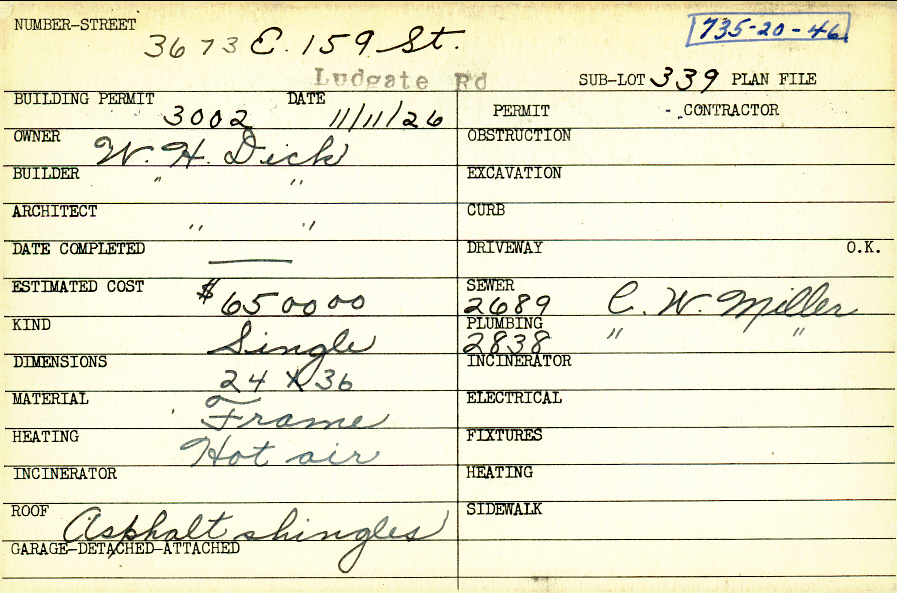 NUMBER-STREET 3673 E. 159 St. 735-20-46
Ludgate Rd
SUB-LOT 339 PLAN FILE
BUILDING PERMIT 3002 DATE 11/11/26
PERMIT - CONTRACTOR
OWNER W. H. Dick
OBSTRUCTION
BUILDER " "
EXCAVATION
ARCHITECT " "
CURB
DATE COMPLETED —
DRIVEWAY O.K.
ESTIMATED COST $6500 00
SEWER 2689 C. W. Miller
KIND Single
PLUMBING 2838 " "
DIMENSIONS 24 X 36
INCINERATOR
MATERIAL Frame
ELECTRICAL
HEATING Hot air
FIXTURES
INCINERATOR
HEATING
ROOF Asphalt shingles
SIDEWALK
GARAGE-DETACHED-ATTACHED